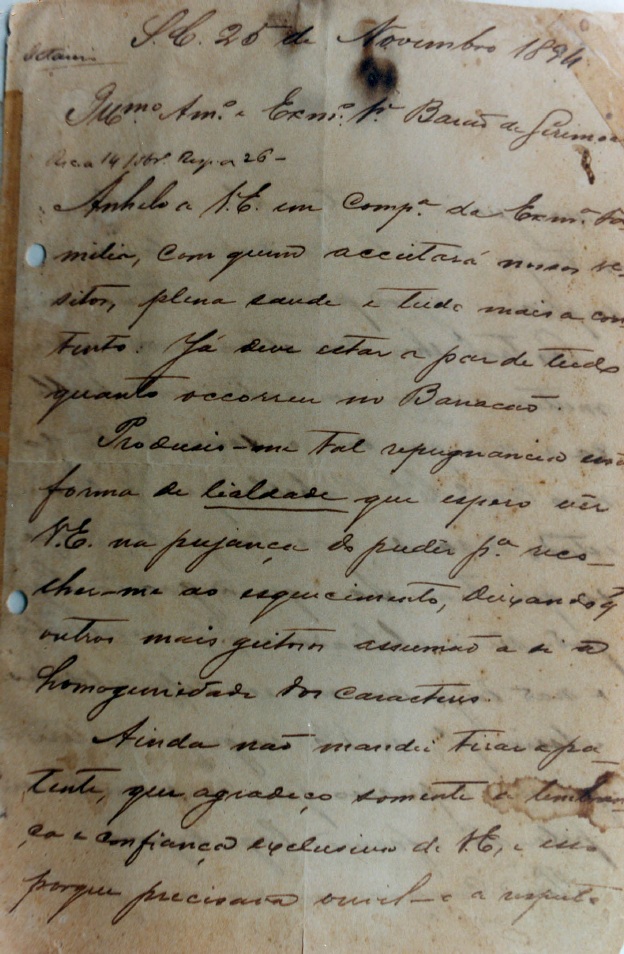 S.C. 25 de Novembro 1894
Illmo. Amo. e Exmo. Sr. Barão de Geremoa
Rec. a 14 Resp. a 26 -
Anhelo a V.E. em compa. da Exma. Fa-
milia, com quem acceitará nossas vi-
sitas, plena saude e tudo mais a con-
tento. Já deve estar a par de tudo
quanto occorreu no Baracão.
Produsio-me tal repugnancia essa
forma de lialdade que espero vêr
V.E. na pujança do puder pa. reco-
lher-me ao esquecimento, deixando q
outros mais geitosos assumão a si a
homogeniedade dos caracteres.
Ainda não mandei tirar a pa-
tente, que agradeço somente a lembran-
ça e confiança exclusiva de V.E, e isso
porque precisava ouvil-o a respeito